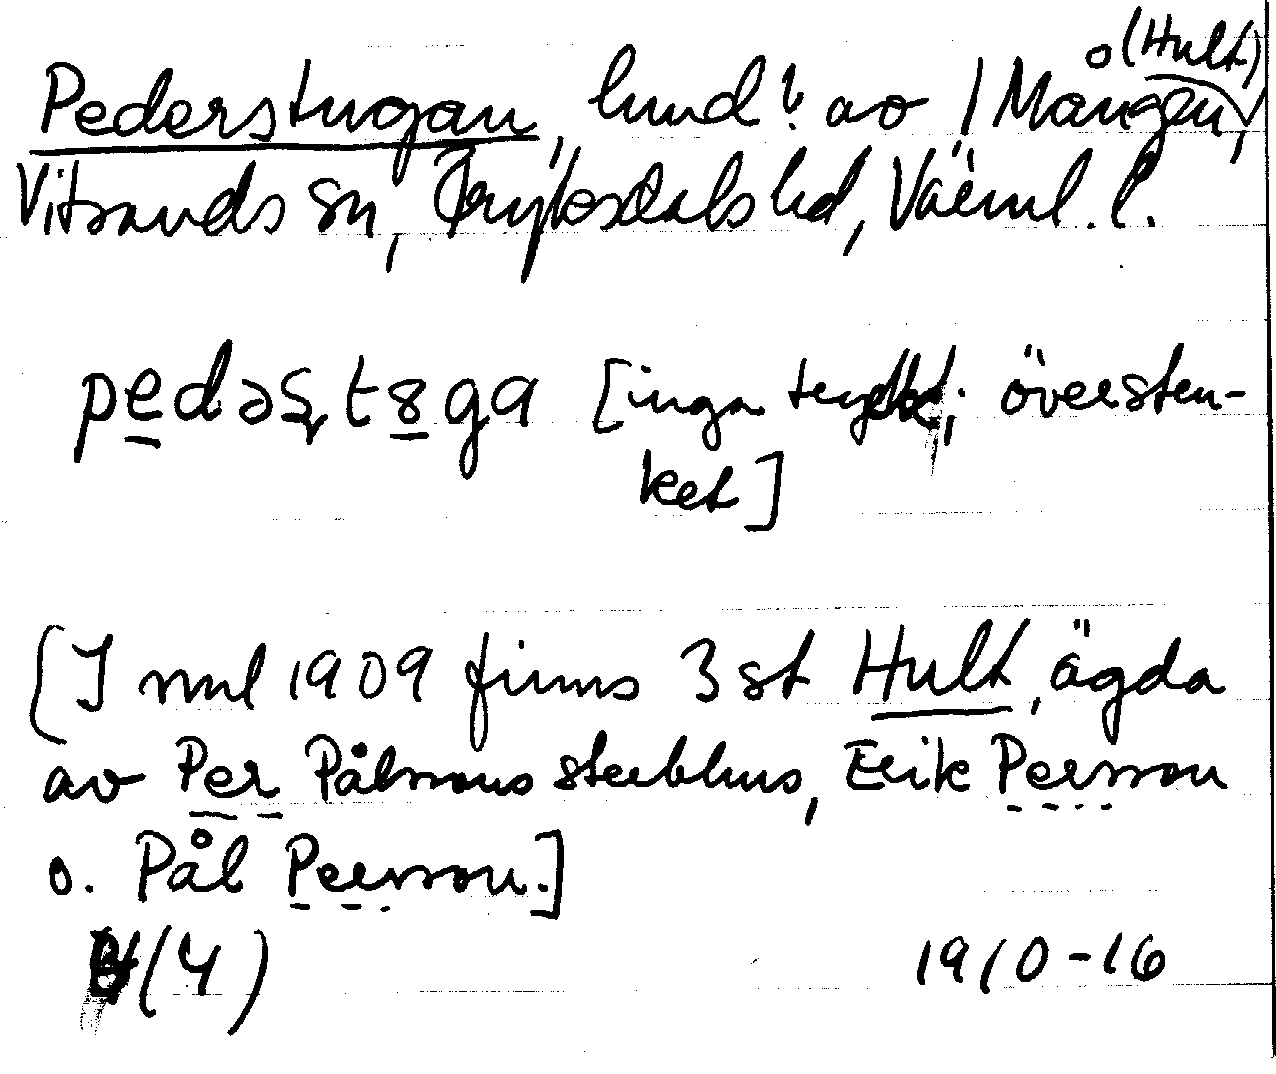 Pederstugan, hmd? av 1 Mangen, o (Hult)
Vitsands sn, Fryksdals hd, Värml. l.
pedəʂtȣga [inga tryckt; överstru-
ket]
[I mul 1909 finns 3 st Hult, ägda
av Per Pålssons sterbhus, Erik Persson
o. Pål Persson.]
(4) 1910-16